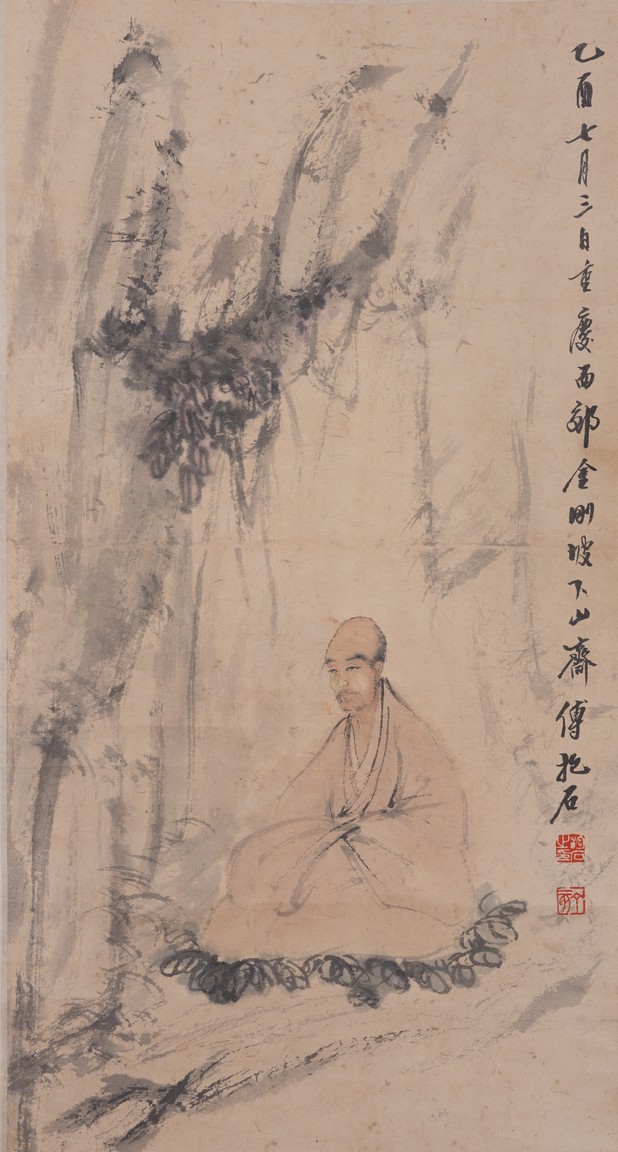 乙酉七月三日重慶西郊金剛坡下山齋傅抱石